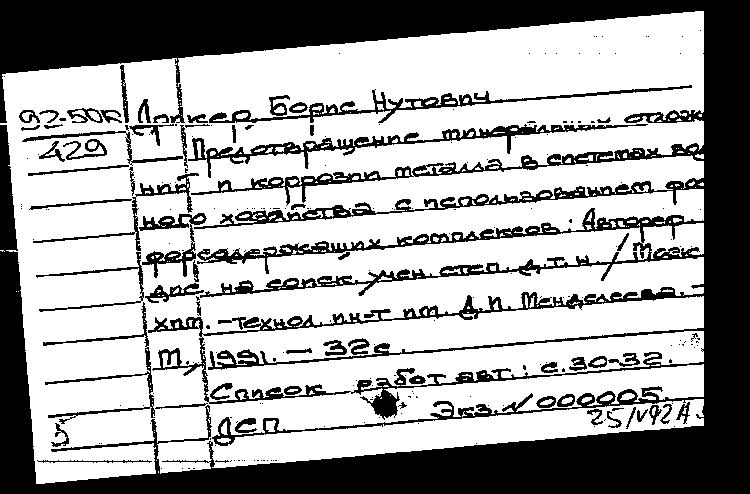 92-50к Дрикер, Борис Нутович
429 Предотвращение минеральных отлож
ний и коррозии металла в системах вод
ного хозяйства с использованием фос
форсодержащих комплексов : Автореф.
дис. на соиск. учен. степ. д.т.н. / Моск
хим.-технол. ин-т им. Д.И. Менделеева. -
М., 1991. - 32с.
Список работ авт.: с.30-32.
Экз. N 000005.
5 ДСП
25/IV92